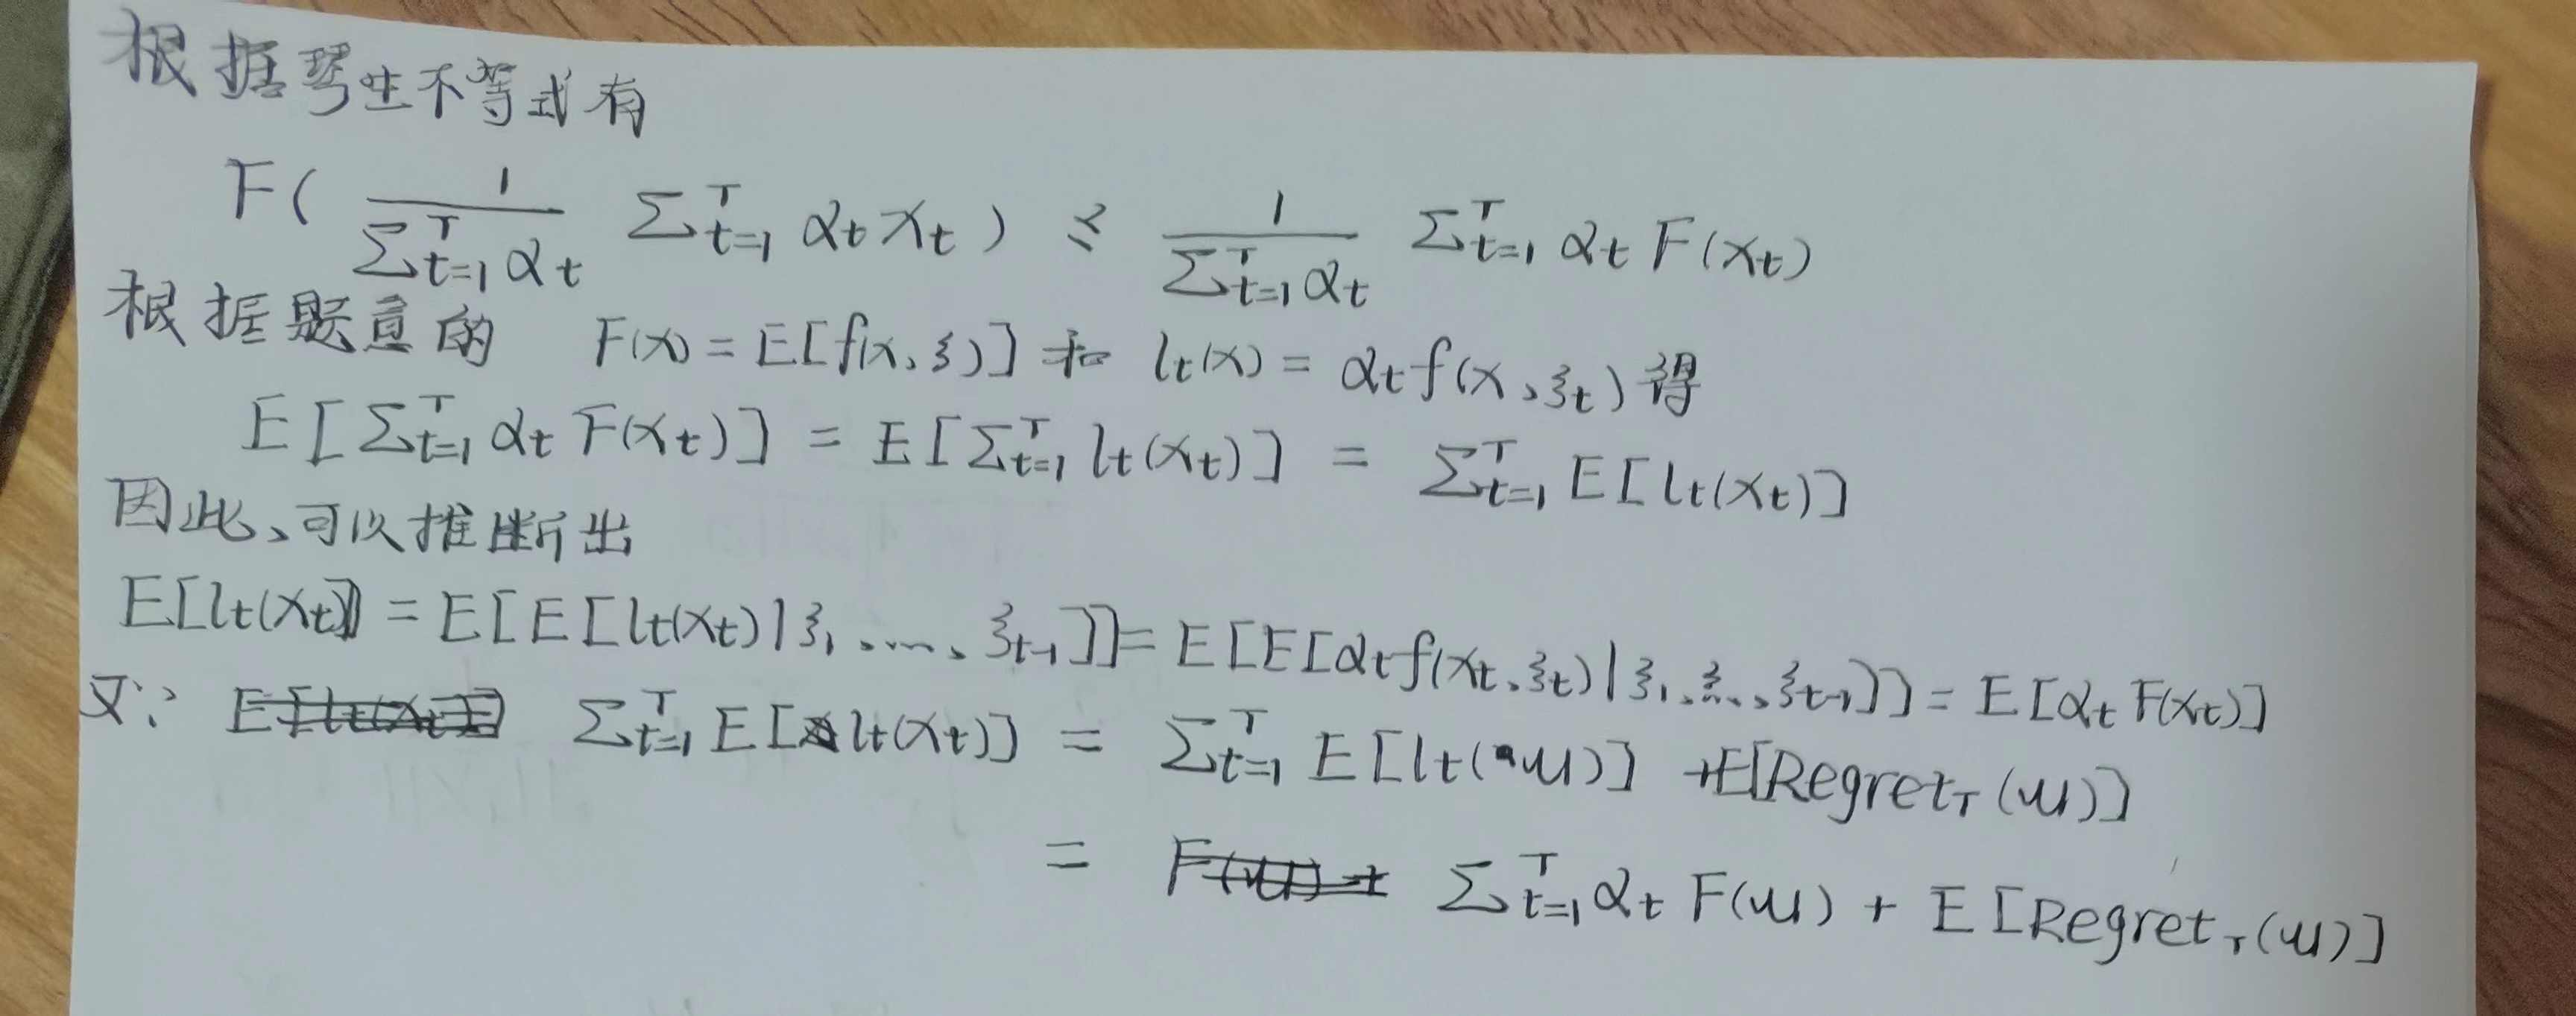 根据琴生不等式有
F( \frac{1}{\sum_{t=1}^{T} α_t} \sum_{t=1}^{T} α_t x_t ) ≤ \frac{1}{\sum_{t=1}^{T} α_t} \sum_{t=1}^{T} α_t F(x_t)
根据题意的 F(x) = E[f(x、ξ)] 和 l_t(x) = α_t f(x、ξ_t) 得
E[\sum_{t=1}^{T} α_t F(x_t)] = E[\sum_{t=1}^{T} l_t(x_t)] = \sum_{t=1}^{T} E[l_t(x_t)]
因此、可以推断出
E[l_t(x_t)] = E[E[l_t(x_t)|ξ_1、...、ξ_{t-1}]] = E[E[α_t f(x_t、ξ_t)|ξ_1、...、ξ_{t-1}]] = E[α_t F(x_t)]
又∵ \sum_{t=1}^{T} E[l_t(x_t)] = \sum_{t=1}^{T} E[l_t(u)] + E[Regret_T(u)]
= \sum_{t=1}^{T} α_t F(u) + E[Regret_T(u)]